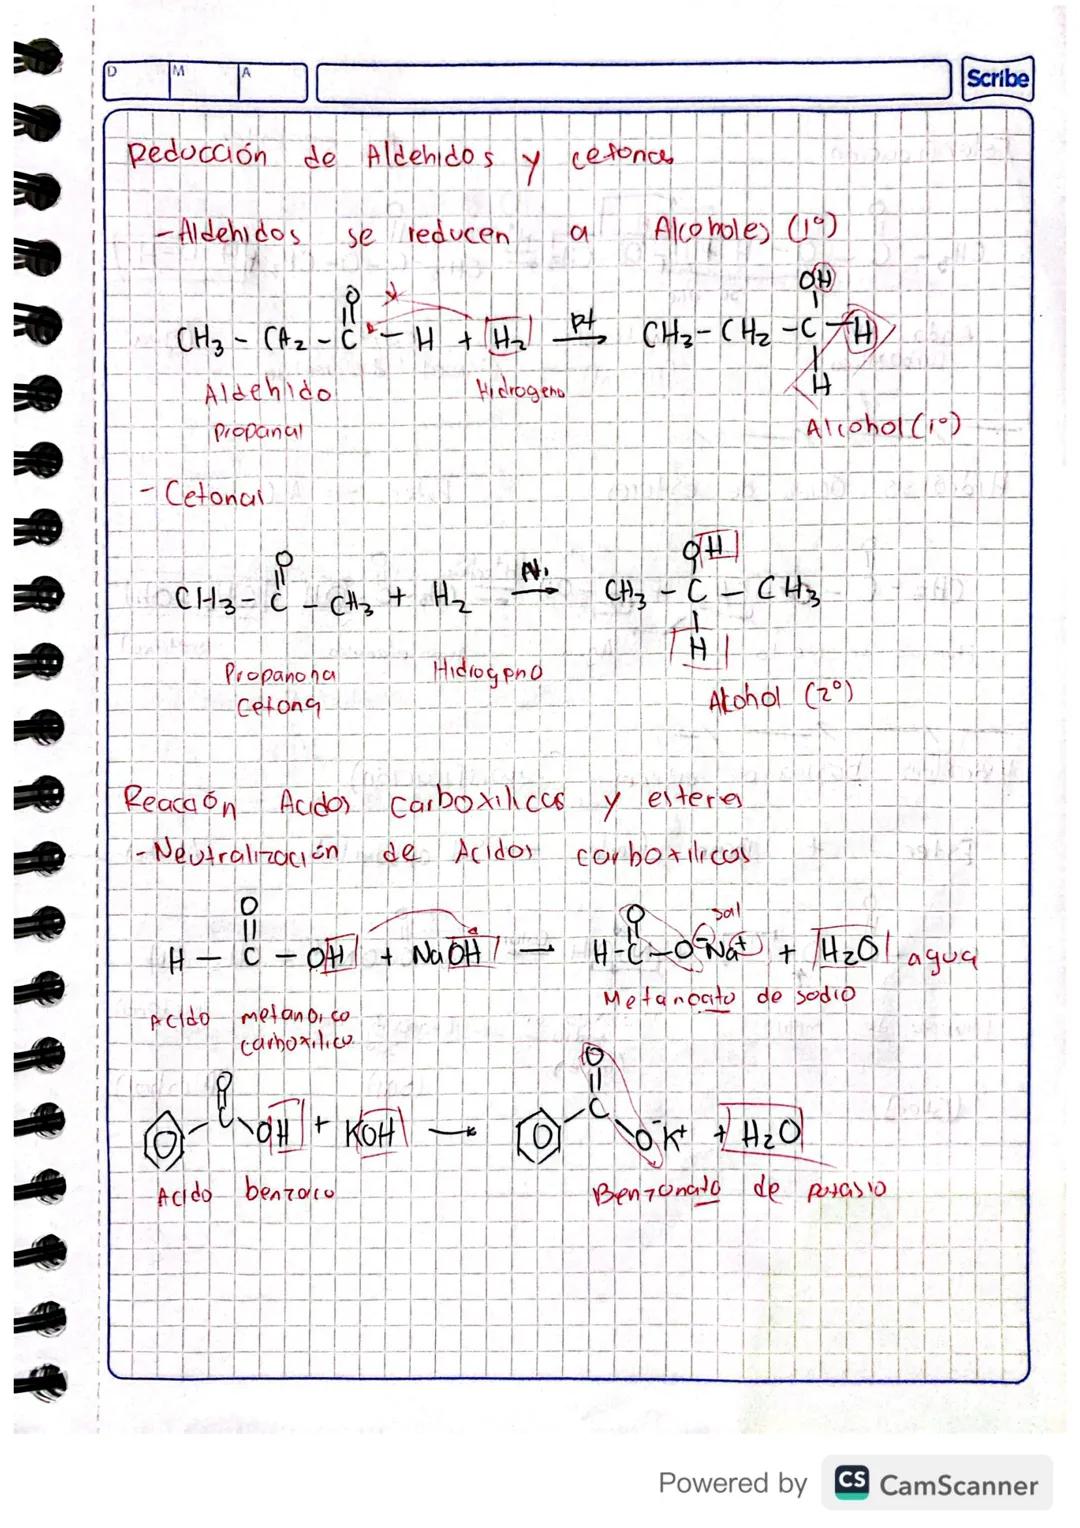 D M A Scribe
Reducción de Aldehidos y cetonas
- Aldehidos se reducen a Alcoholes (1°)
O OH
CH3 - CH2 - C - H + H2 Pt → CH3 - CH2 - C - H
H
Aldehido Hidrogeno
Propanal Alcohol (1°)
- Cetonas
O OH
CH3 - C - CH3 + H2 Ni → CH3 - C - CH3
H
Propanona Hidrogeno
Cetona Alcohol (2°)
Reacción Acidos carboxilicos y esteres
- Neutralización de Acidos carboxilicos
O O sal
H - C - OH + NaOH → H - C - O⁻Na⁺ + H2O agua
Acido metanoico Metanoato de sodio
carboxilico
O O
C OH + KOH → C O⁻K⁺ + H2O
Acido benzoico Benzonato de potasio
Powered by CS CamScanner